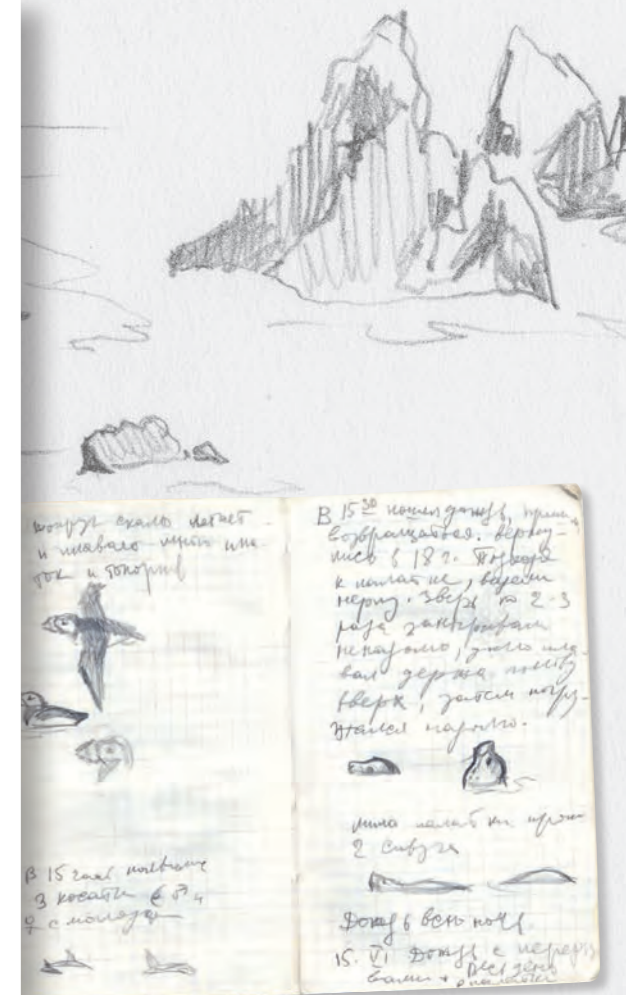 вокруг скалы летает
и плавало
и топорков
В 15 час
3 косатки ♂ и
♀ с молодым
В 15 30 пошел дождь, приш.
возвращаться. Верну-
лись в 18 г. Подходя
к палатке, видели
нерпу. Зверь по 2-3
раза заныривал
ненадолго, долго пла-
вал держа
вверх, затем погру-
жался надолго.
мимо палатки
2 сивуча
Дождь всю ночь.
15. VI Дождь с переры-
вами. Весь день
в палатке